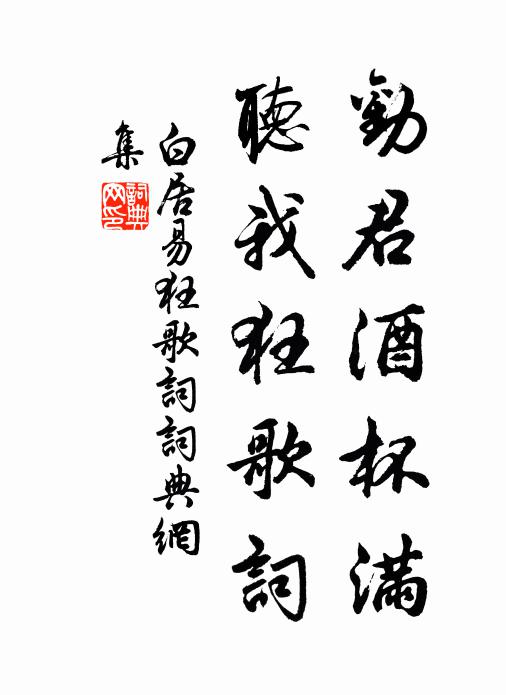 勸君酒杯滿
聽我狂歌詞
白居易狂歌詞詞典網
集
詞典
网印